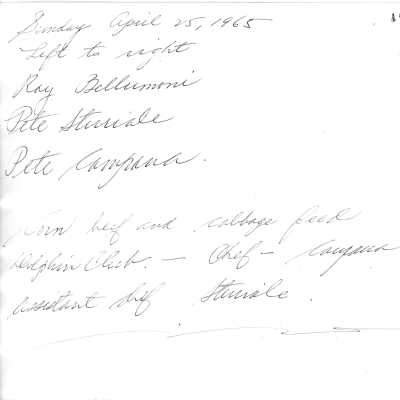 Sunday April 25, 1965
Left to right
Ray Bellumoni
Pete Sturiale
Pete Campana.
Corn beef and cabbage feed
Dolphin Club. — Chef — Campana
assistant chef Sturiale.